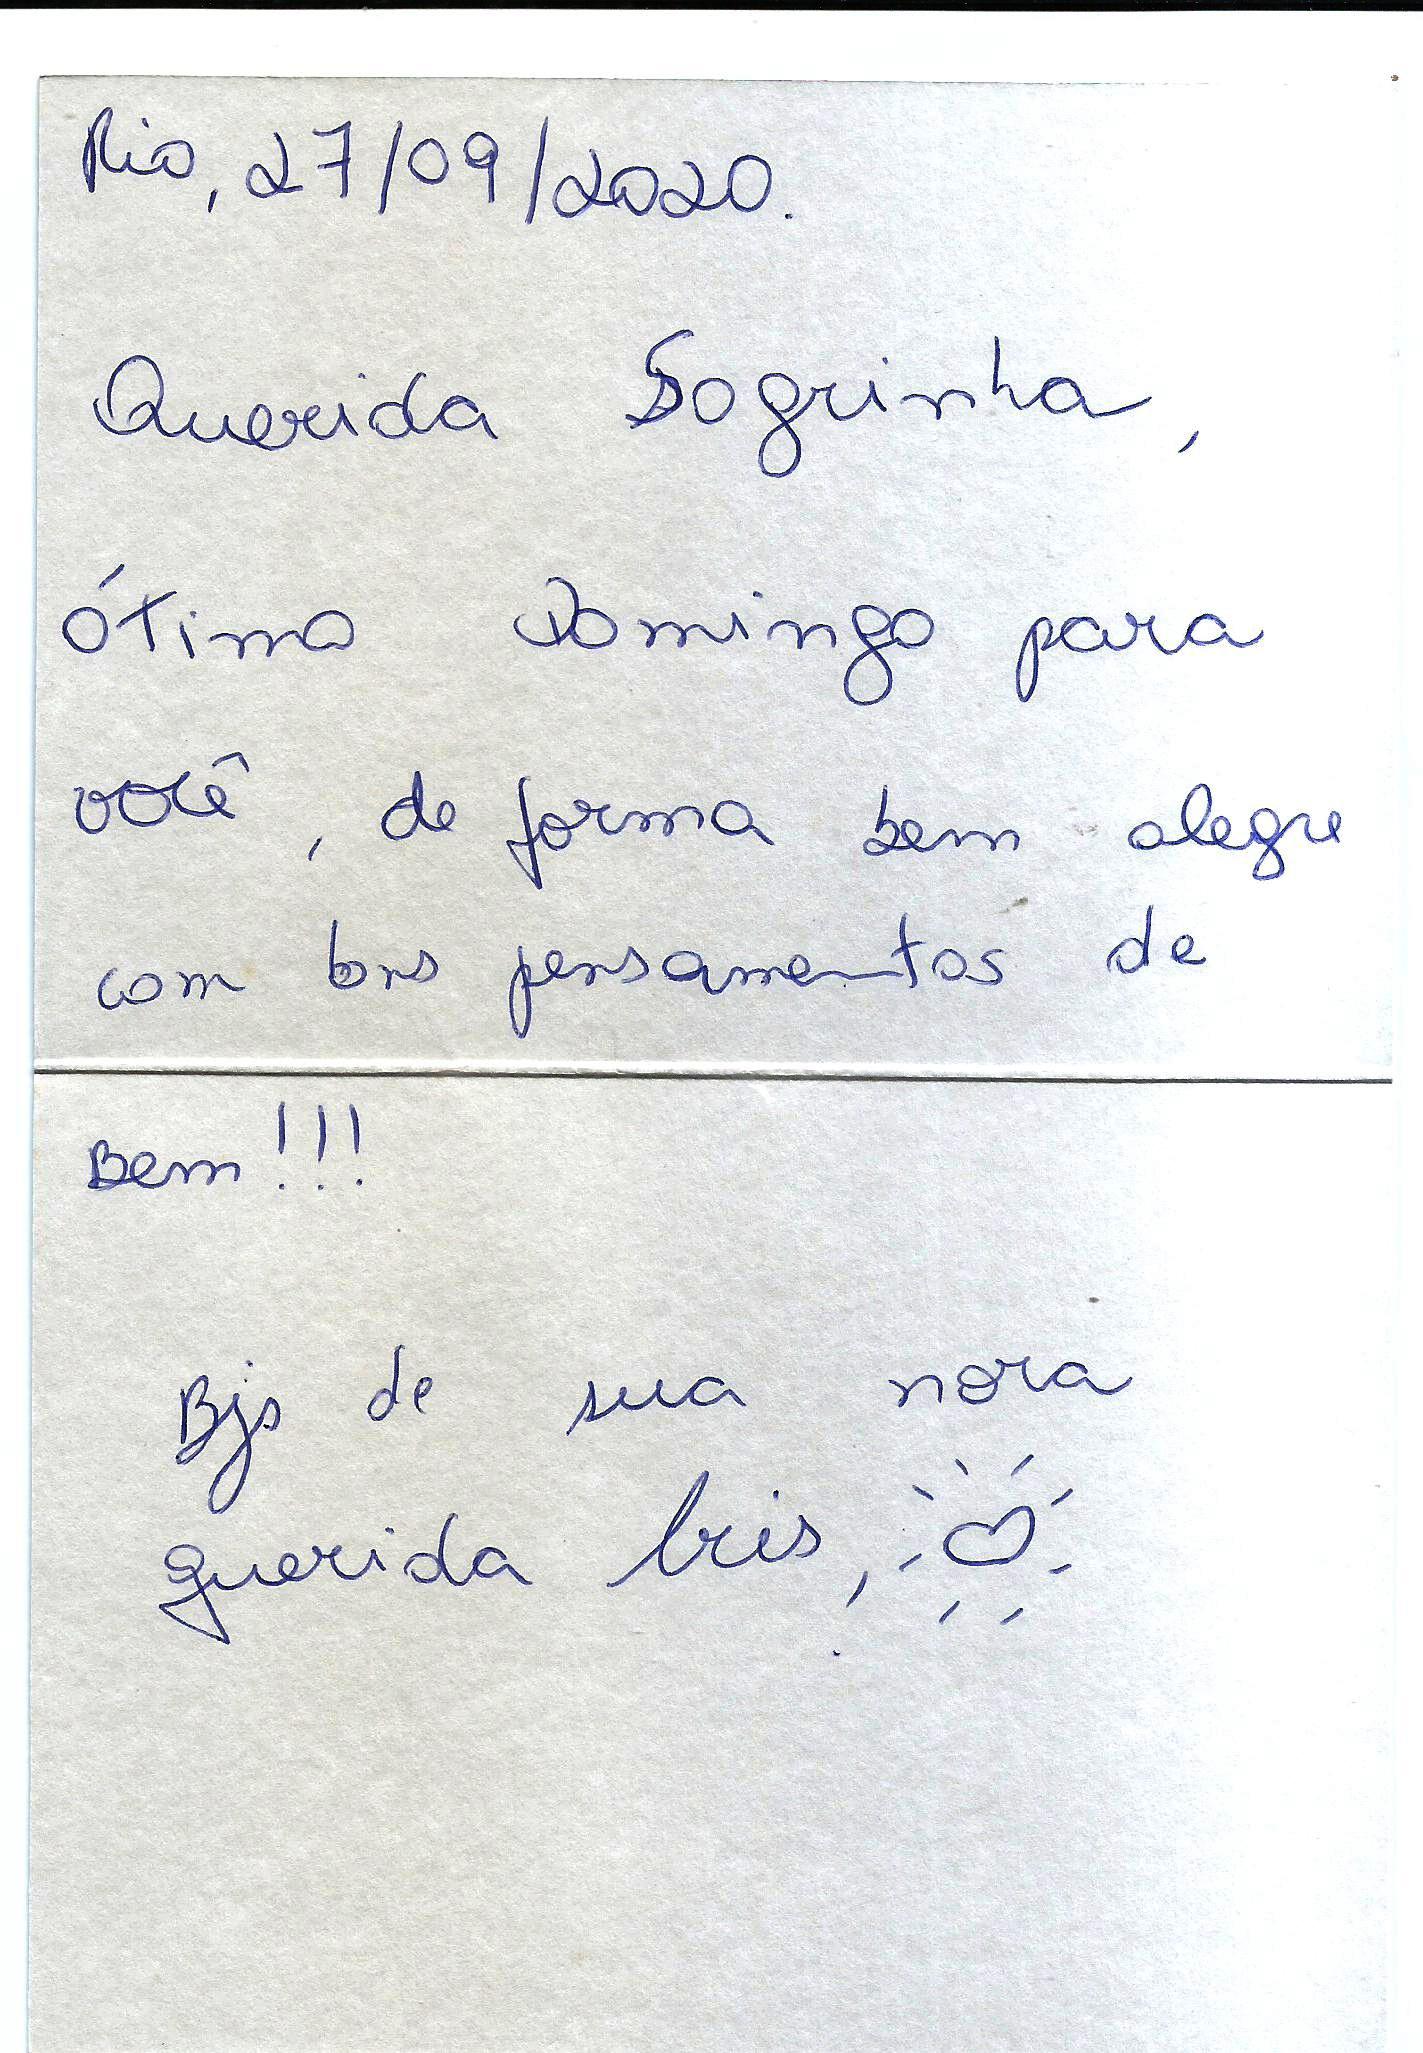 Rio, 27/09/2020.
Querida Sogrinha,
Ótimo Domingo para
você, de forma bem alegre
com bons pensamentos de
Bem!!!
Bjs de sua nora
querida Iris,